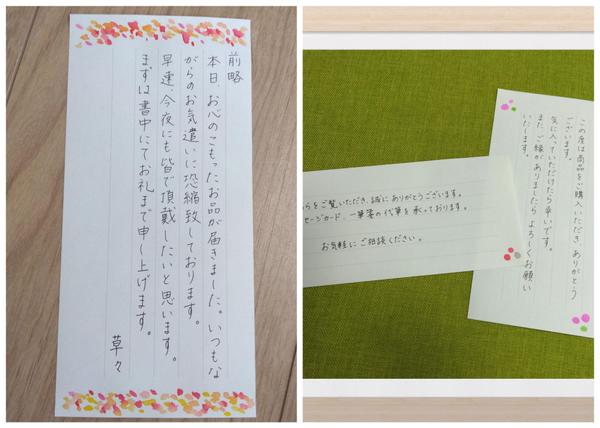 前略
本日、お心のこもったお品が届きました。いつもな
がらのお気遣いに恐縮致しております。
早速、今夜にも皆で頂戴したいと思います。
まずは書中にてお礼まで申し上げます。
草々
らをご覧いただき、誠にありがとうございます。
セージカード、一筆箋の代筆を承っております。
お気軽にご相談ください。
この度は商品をご購入いただき、ありがとう
ございます。
気に入っていただけたら幸いです。
また、ご縁がありましたらよろしくお願い
いたします。